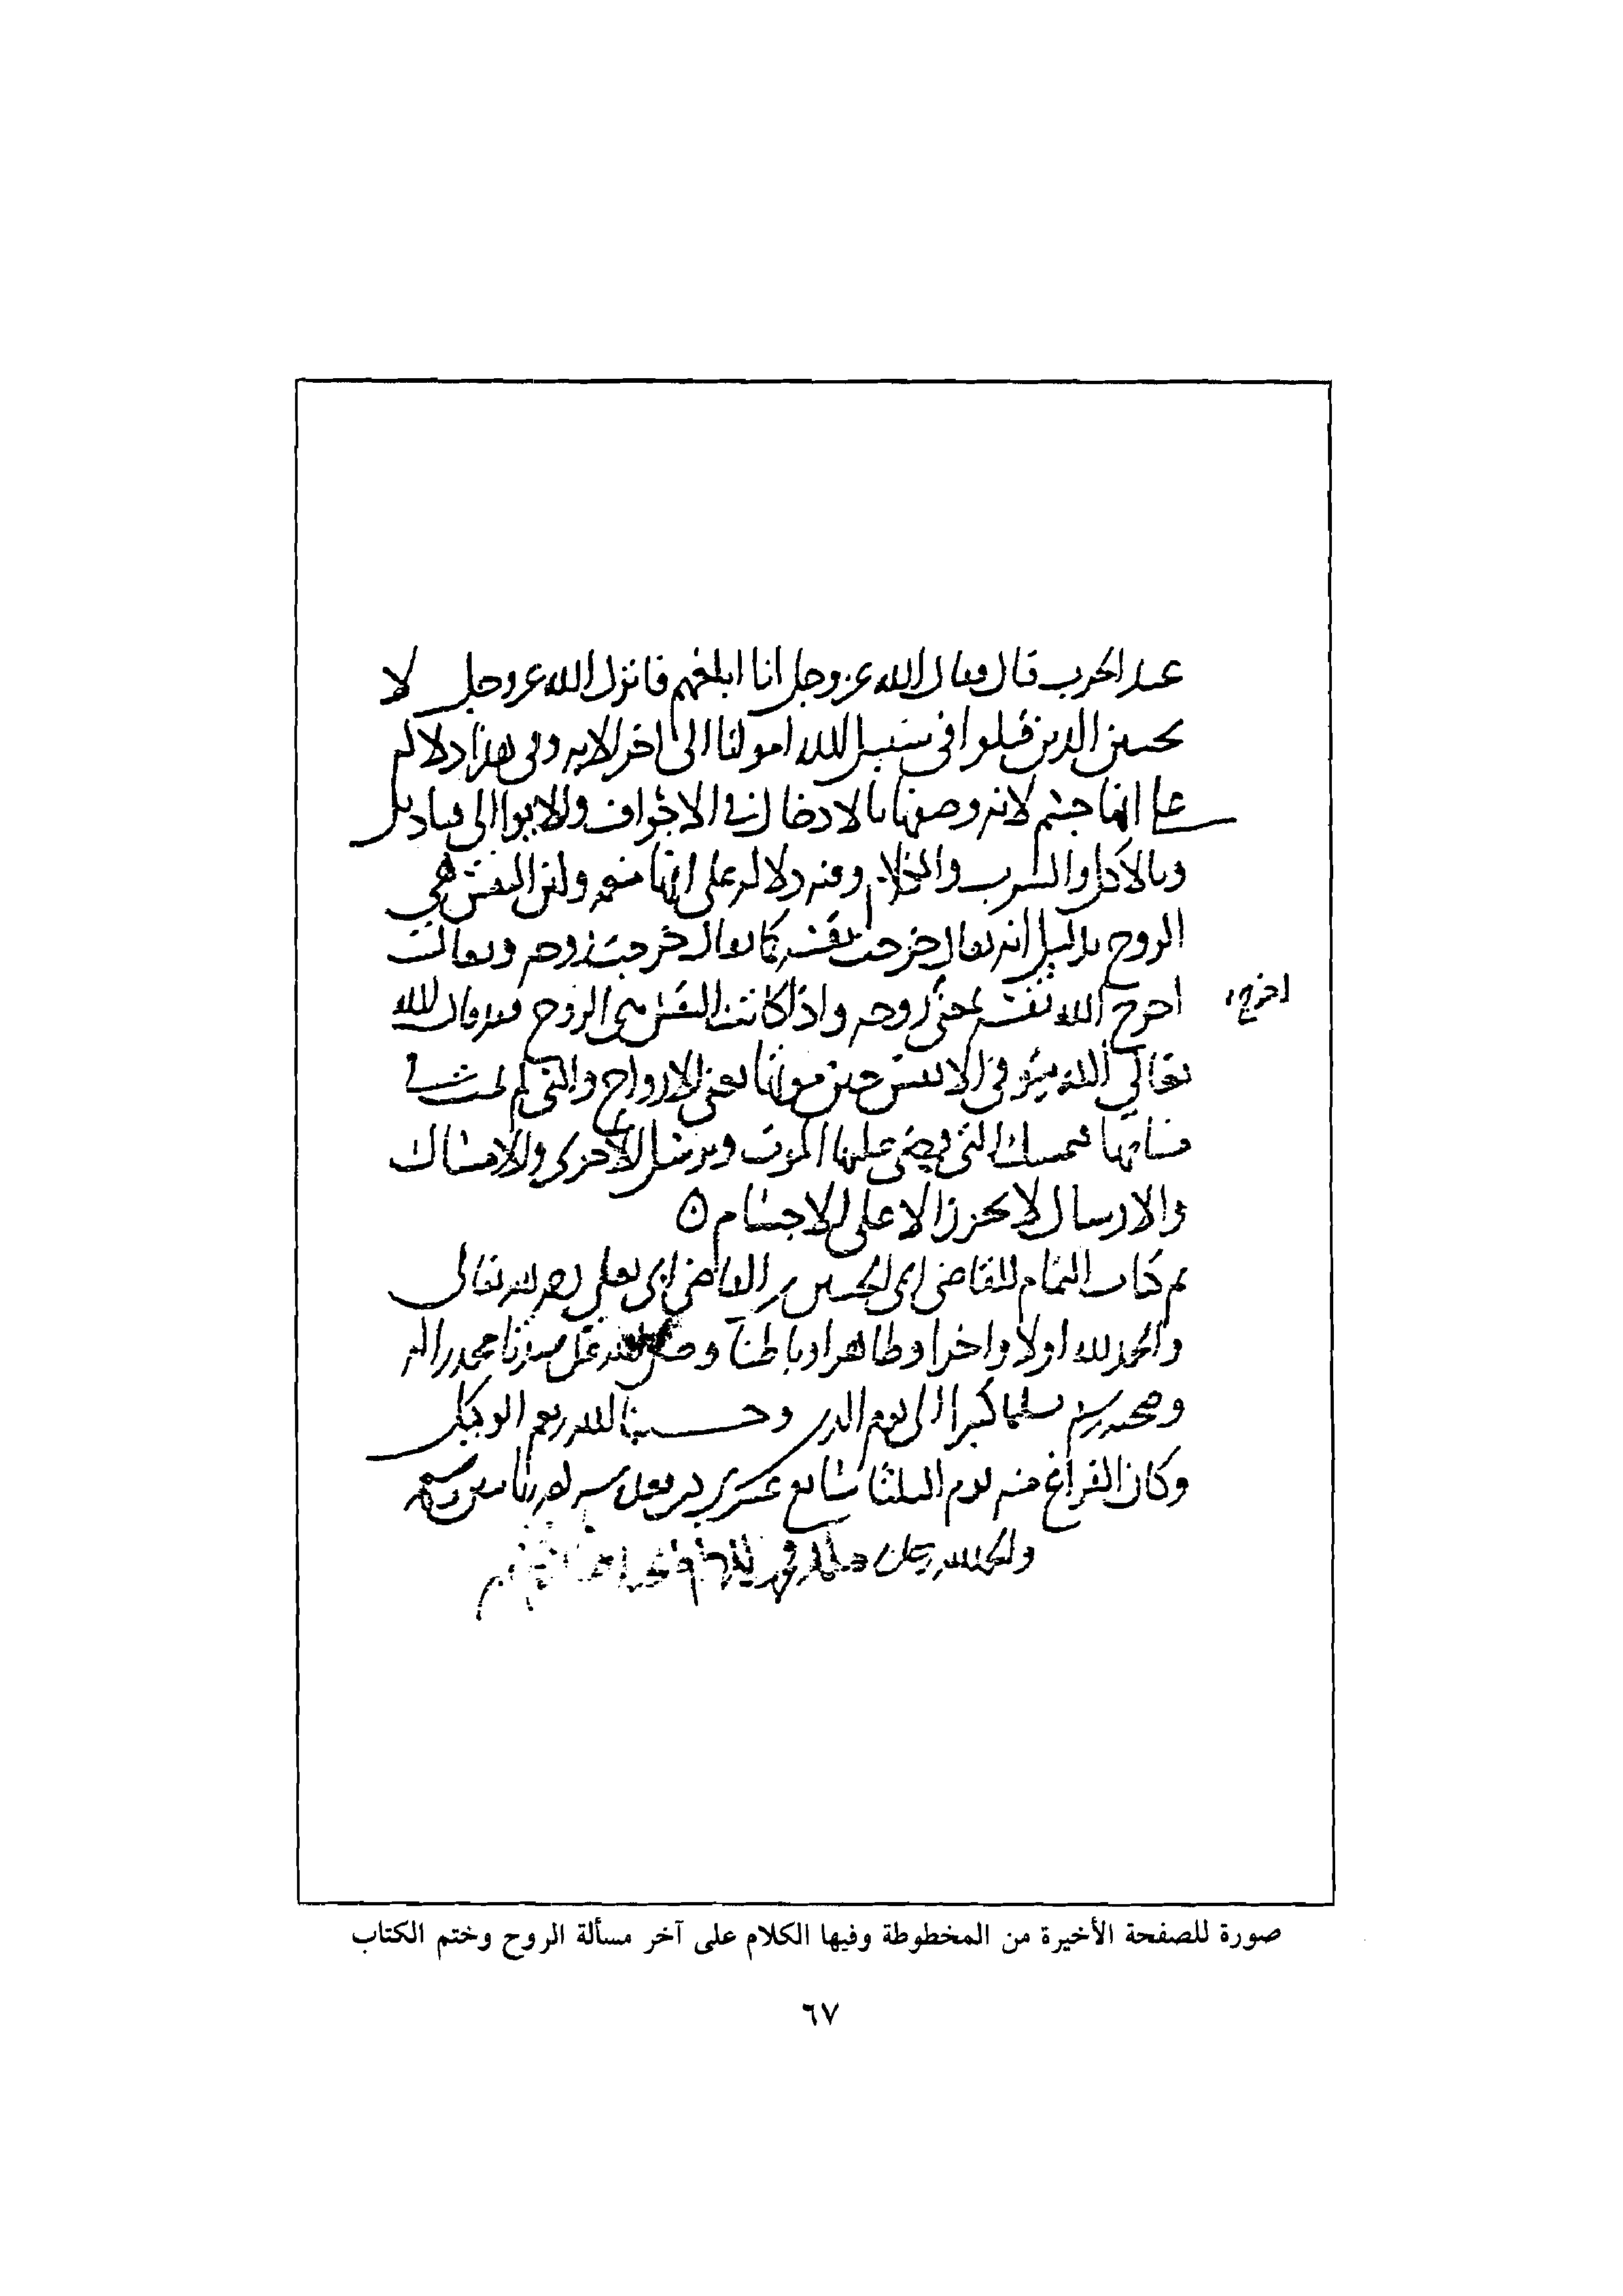 عند الحرب قال فقال الله عز وجل انا ابلغهم فانزل الله عز وجل لا
تحسبن الذين قتلوا في سبيل الله امواتا الى اخر الايه وفي هذا دلاله
على انها جسم لانه وصفها بالادخال في الاجواف والايوا الى قناديل
وبالاكل والشرب والكلام وفيه دلاله على انها منعمه ولان النفس هي
الروح بدليل انه يقال خرجت نفسه كما يقال خرجت روحه ويقال
اخرج الله نفسه بمعنى روحه واذا كانت النفس هي الروح فقد قال الله
اخرج
تعالى الله يتوفى الانفس حين موتها يعني الارواح والتي لم تمت في
منامها فيمسك التي قضى عليها الموت ويرسل الاخرى والامساك
والارسال لا يجوز الا على الاجسام
تم كتاب التمام للقاضي ابي الحسين بن القاضي ابي يعلى رحمه الله تعالى
والحمد لله اولا واخرا وظاهرا وباطنا وصلى الله على سيدنا محمد واله
وصحبه وسلم تسليما كثيرا الى يوم الدين وحسبنا الله ونعم الوكيل
وكان الفراغ منه يوم الثلثا سابع عشرين
والحمد لله
صورة للصفحة الأخيرة من المخطوطة وفيها الكلام على آخر مسألة الروح وختم الكتاب
٦٧